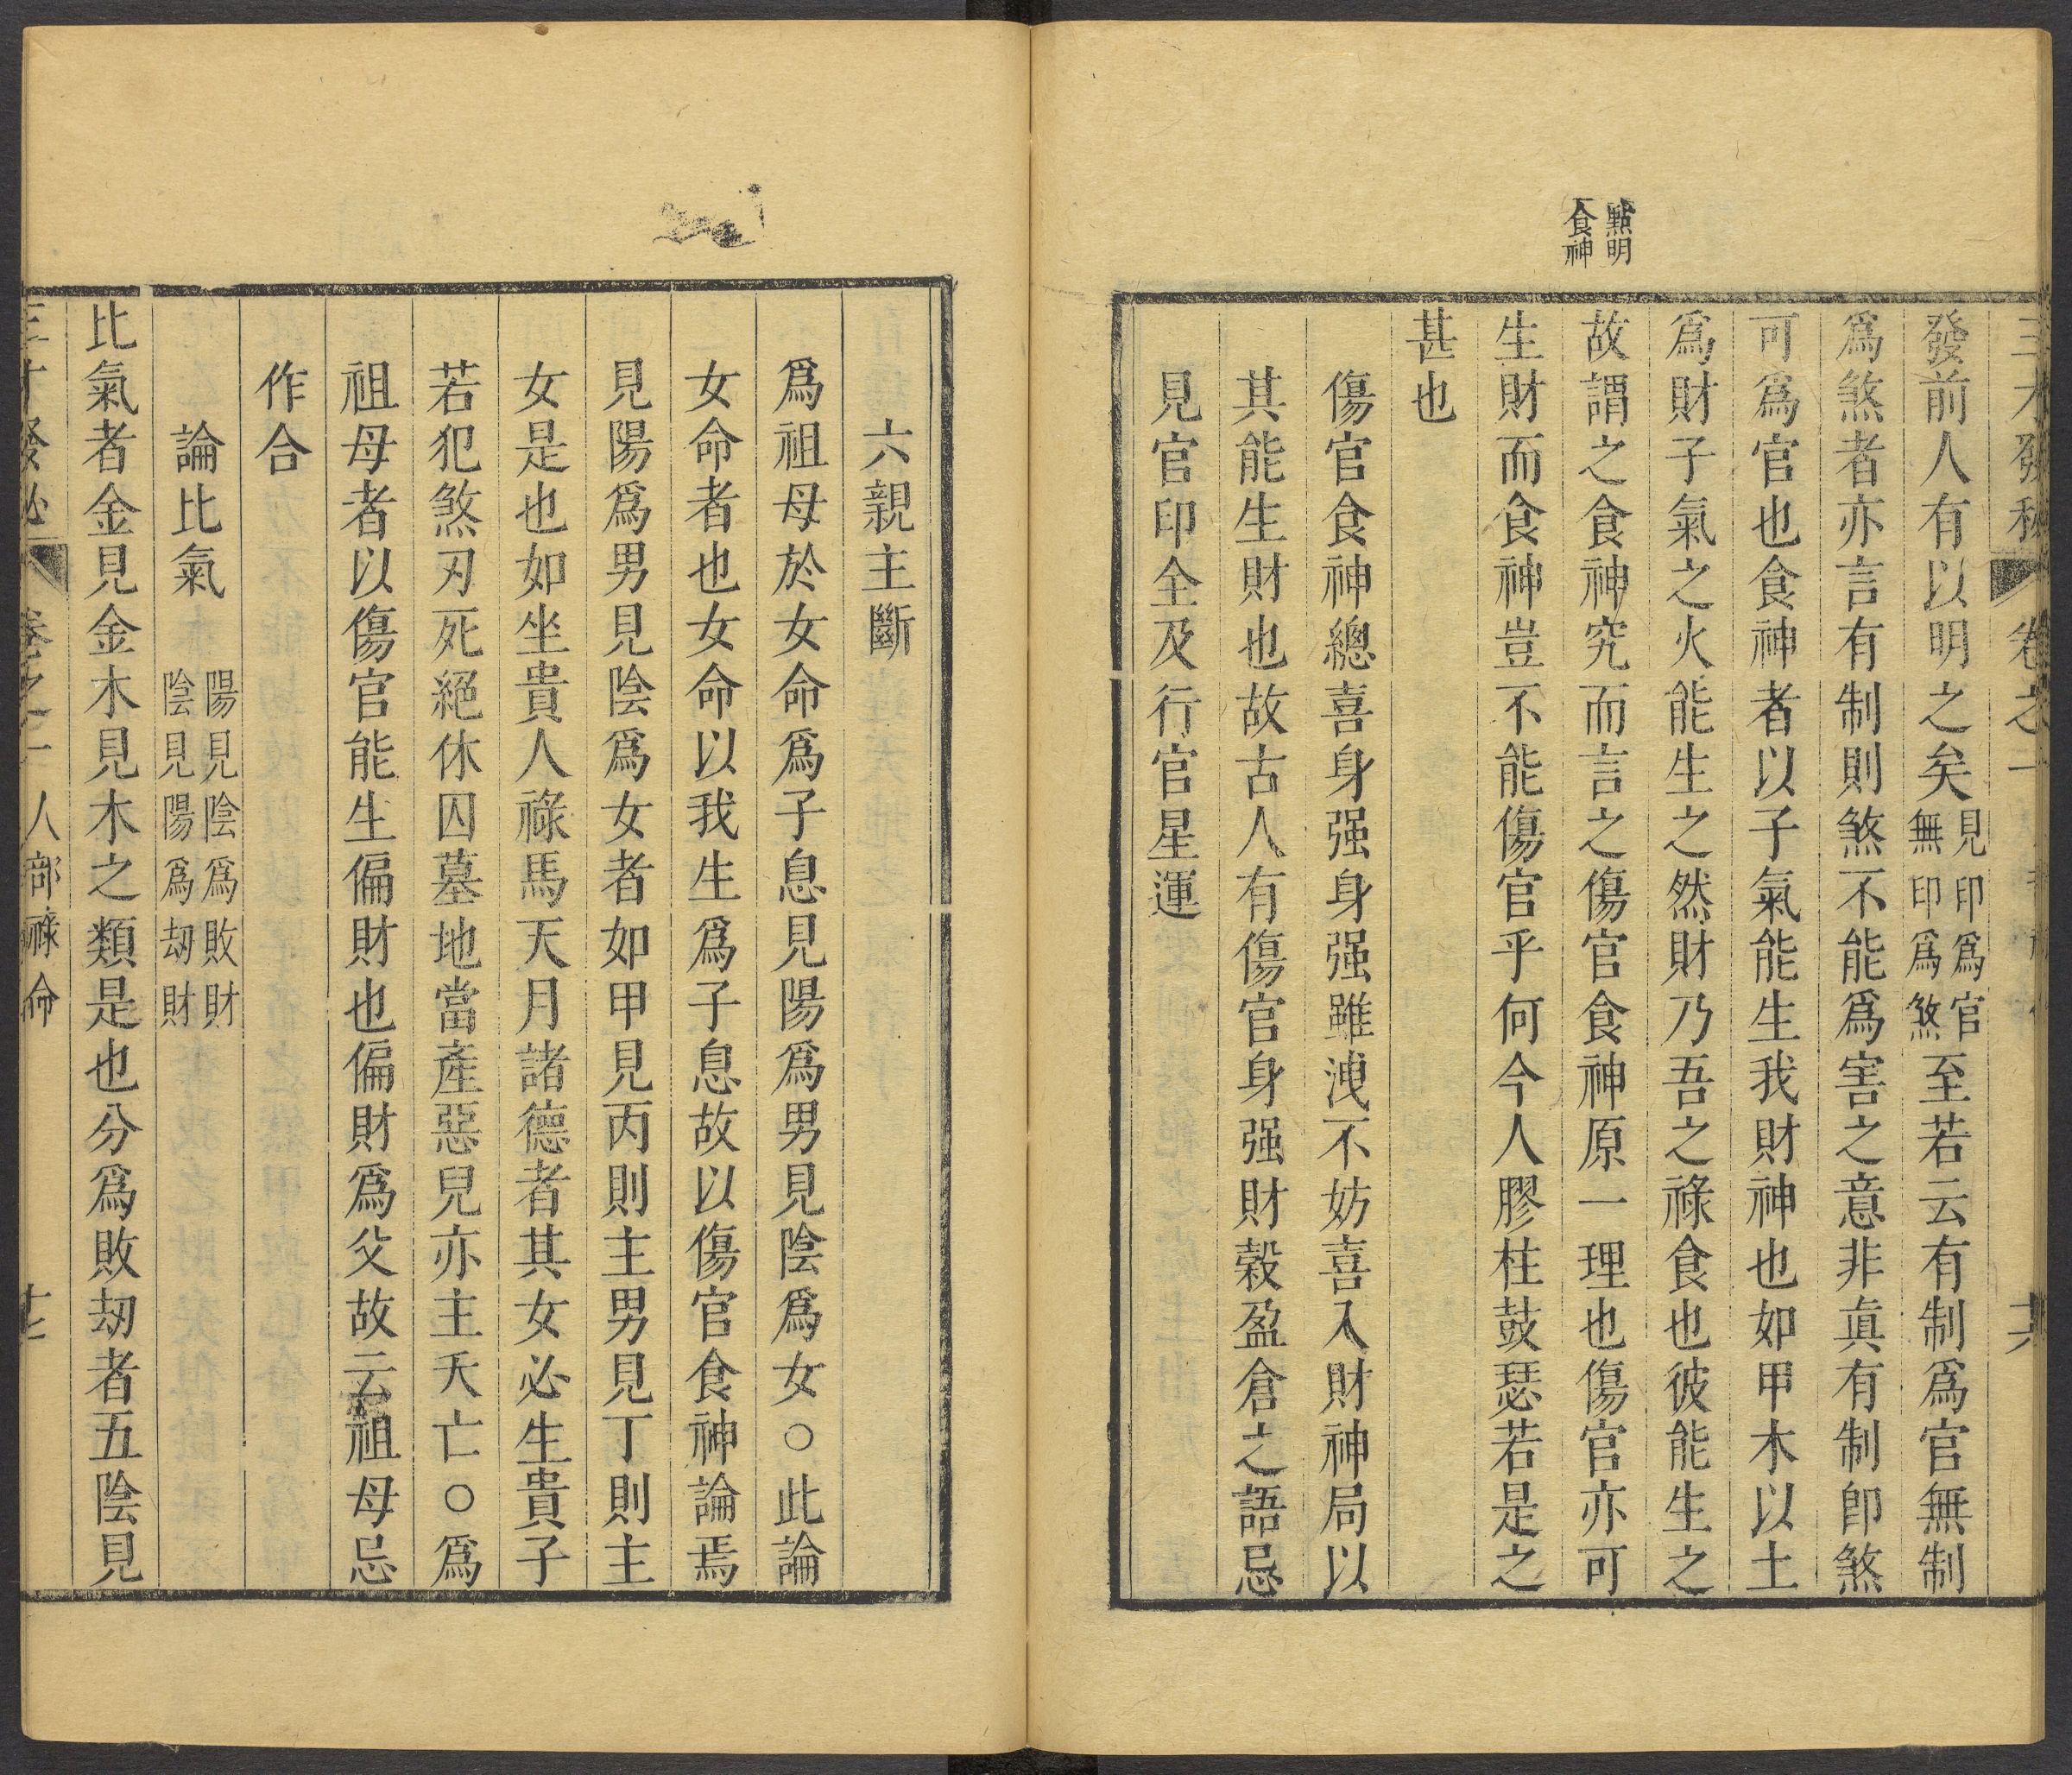 點明
食神
三才發秘 卷之一 十六
發前人有以明之矣見印爲官無印爲煞至若云有制爲官無制
爲煞者亦言有制則煞不能爲害之意非真有制卽煞
可爲官也食神者以子氣能生我財神也如甲木以土
爲財子氣之火能生之然財乃吾之祿食也彼能生之
故謂之食神究而言之傷官食神原一理也傷官亦可
生財而食神豈不能傷官乎何今人膠柱鼓瑟若是之
甚也
傷官食神總喜身强身强雖洩不妨喜入財神局以
其能生財也故古人有傷官身强財穀盈倉之語忌
見官印全及行官星運
六親主斷
爲祖母於女命爲子息見陽爲男見陰爲女○此論
女命者也女命以我生爲子息故以傷官食神論焉
見陽爲男見陰爲女者如甲見丙則主男見丁則主
女是也如坐貴人祿馬天月諸德者其女必生貴子
若犯煞刃死絕休囚墓地當產惡兒亦主夭亡○爲
祖母者以傷官能生偏財也偏財爲父故云祖母忌
作合
論比氣 陽見陰爲敗財 陰見陽爲刼財
比氣者金見金木見木之類是也分爲敗刼者五陰見
三才發秘 卷之一 人部祿命 十七